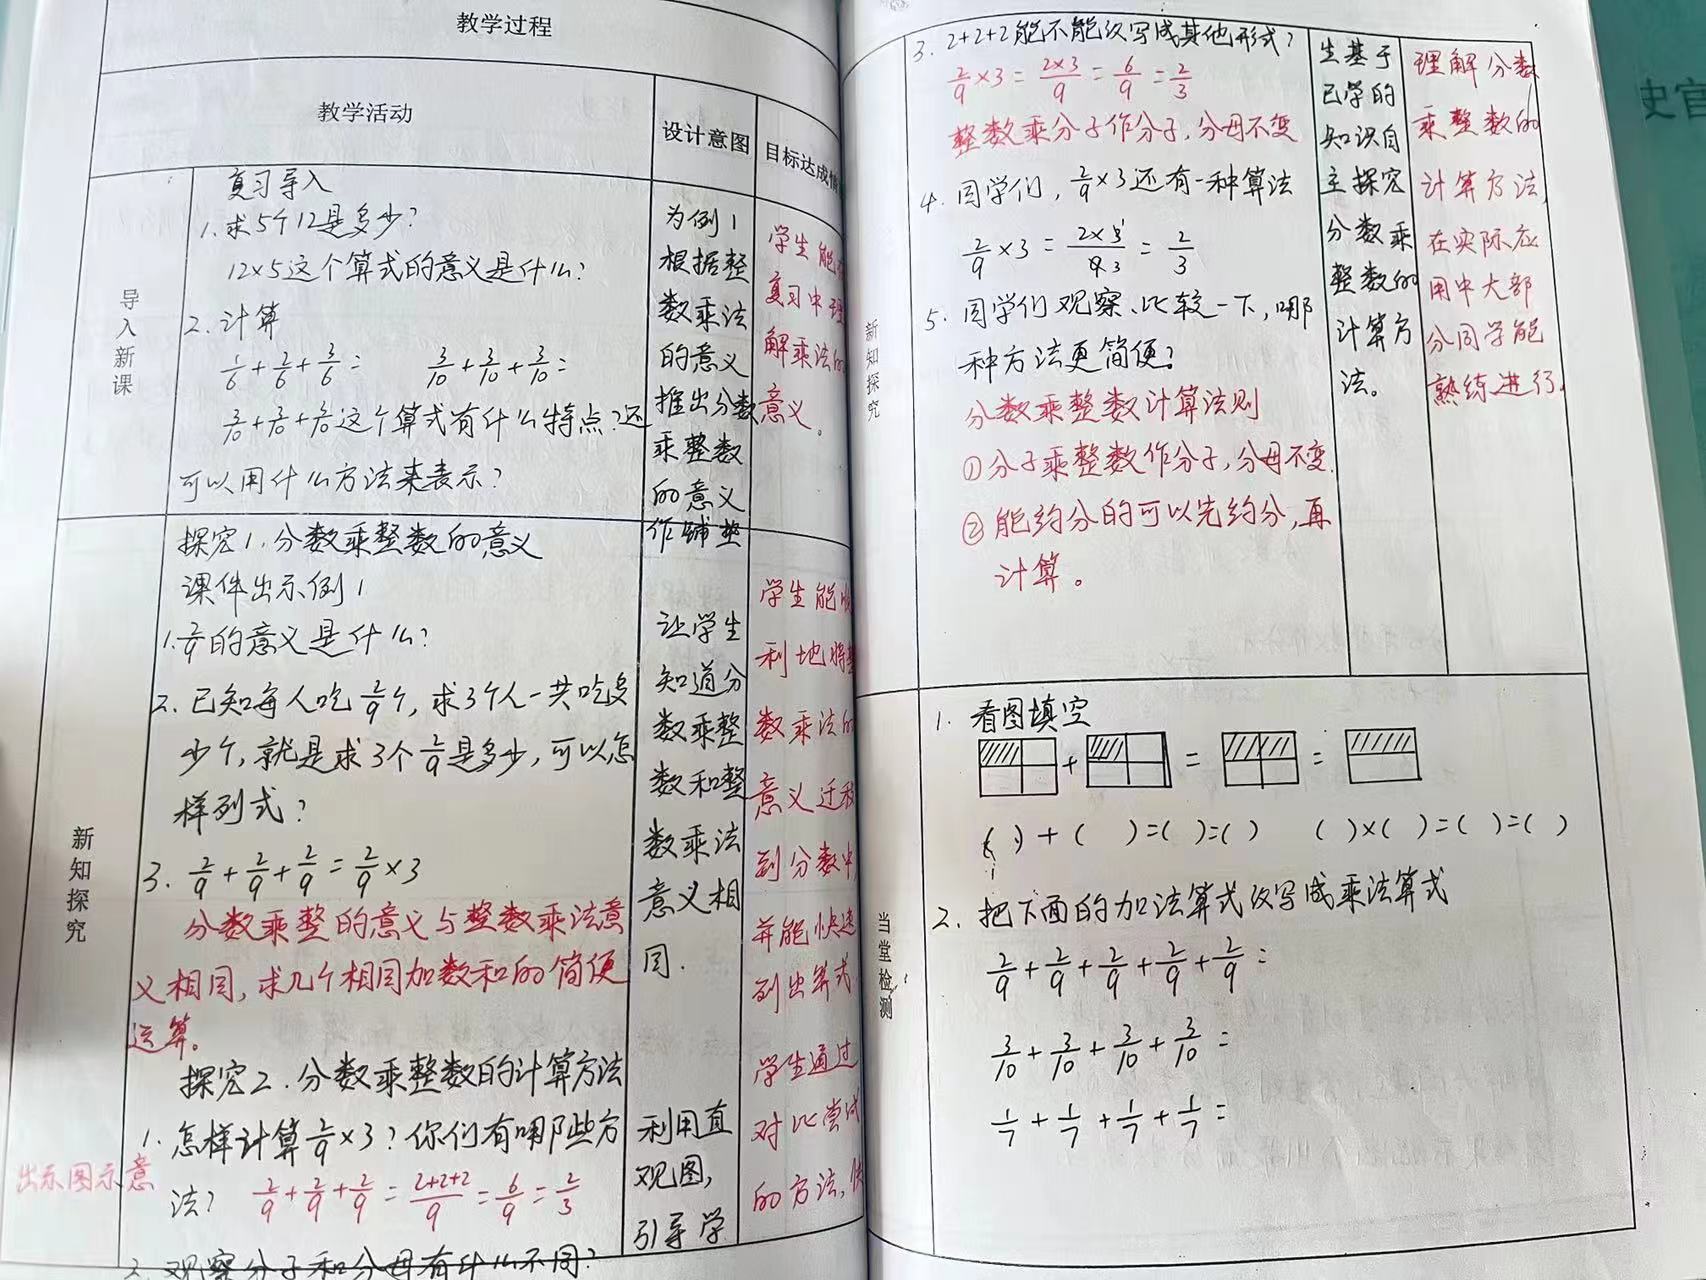 教学过程
教学活动
设计意图
目标达成情
导入新课
复习导入
1.求5个12是多少?
12×5这个算式的意义是什么?
2.计算
1/6+2/6+3/6= 3/10+3/10+3/10=
3/10+3/10+3/10这个算式有什么特点?还
可以用什么方法来表示?
为例1
根据整
数乘法
的意义
推出分数
乘整数
的意义
作铺垫
学生能
复习中理
解乘法的
意义。
新知探究
探究1.分数乘整数的意义
课件出示例1
1.2/9的意义是什么?
2.已知每人吃2/9个,求3个人一共吃多
少个,就是求3个2/9是多少,可以怎
样列式?
3.2/9+2/9+2/9=2/9×3
分数乘整的意义与整数乘法意
义相同,求几个相同加数和的简便
运算。
探究2.分数乘整数的计算方法
1.怎样计算2/9×3?你们有哪些方
出示图示意
法? 2/9+2/9+2/9=2+2+2/9=6/9=2/3
2.观察分子和分母有什么不同?
让学生
知道分
数乘整
数和整
数乘法
意义相
同.
利用直
观图,
引导学
学生能
利地将
数乘法的
意义迁移
到分数中,
并能快速
列出算式
学生通过
对比尝试
的方法,
新知探究
3.2+2+2能不能改写成其他形式?
2/9×3=2×3/9=6/9=2/3
整数乘分子作分子,分母不变
4.同学们,2/9×3还有一种算法
2/9×3=2×3 1/9 3=2/3
5.同学们观察、比较一下,哪
种方法更简便?
分数乘整数计算法则
①分子乘整数作分子,分母不变.
②能约分的可以先约分,再
计算。
生基于
已学的
知识自
主探究
分数乘
整数的
计算方
法。
理解分数
乘整数的
计算方法,
在实际应
用中大部
分同学能
熟练进行.
当堂检测
1.看图填空
+ = =
( )+( )=( )=( ) ( )×( )=( )=( )
2.把下面的加法算式改写成乘法算式
2/9+2/9+2/9+2/9+2/9=
3/10+3/10+3/10+3/10=
1/7+1/7+1/7+1/7=
史官